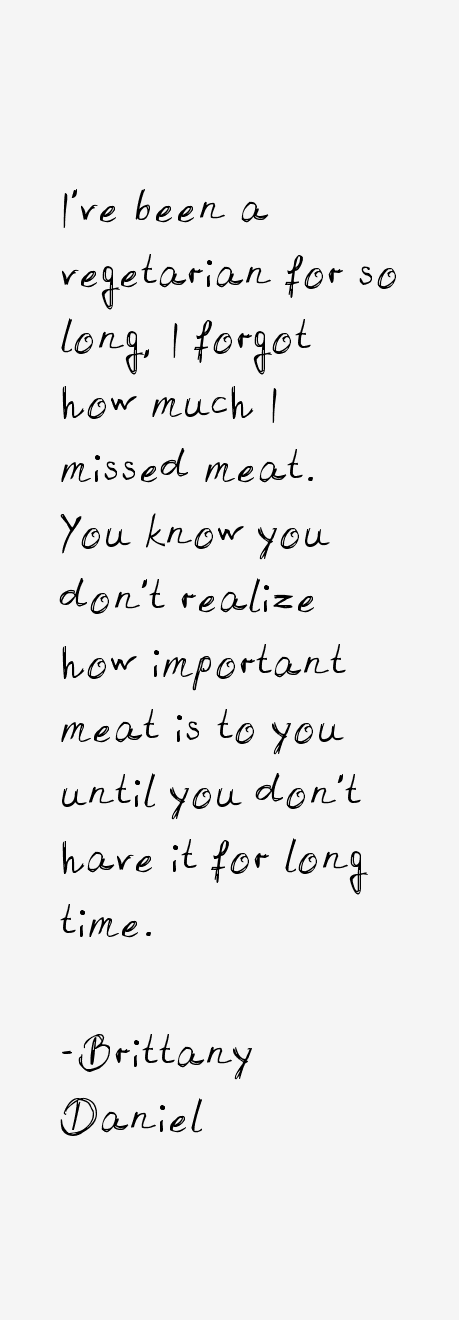 I've been a
vegetarian for so
long, I forgot
how much I
missed meat.
You know you
don't realize
how important
meat is to you
until you don't
have it for long
time.
-Brittany
Daniel